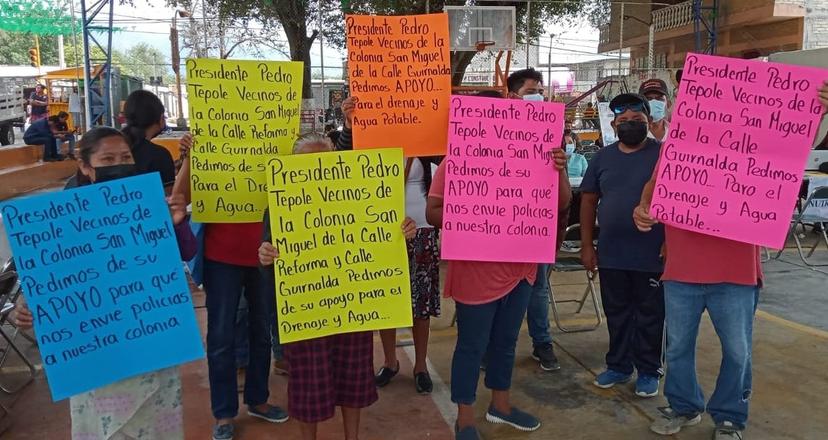 Presidente Pedro
Tepole Vecinos de
la Colonia San Miguel
Pedimos de su
APOYO para qué
nos envie policías
a nuestra colonia
Presidente Pedro
Tepole Vecinos de
la Colonia San Miguel
de la Calle Reforma y
Calle Guirnalda
Pedimos de su apoyo
Para el drenaje
y Agua
Presidente Pedro
Tepole Vecinos de
la Colonia San
Miguel de la Calle
Reforma y Calle
Guirnalda Pedimos
de su apoyo para el
Drenaje y Agua...
Presidente Pedro
Tepole Vecinos de la
Colonia San Miguel
de la Calle Guirnalda
Pedimos de su
APOYO...
Para el drenaje y
Agua Potable.
Presidente Pedro
Tepole Vecinos de
la Colonia San Miguel
Pedimos de su
APOYO para qué
nos envie policías
a nuestra colonia.
Presidente Pedro
Tepole Vecinos de la
Colonia San Miguel
de la Calle
Guirnalda Pedimos
APOYO... Para el
Drenaje y Agua
Potable...